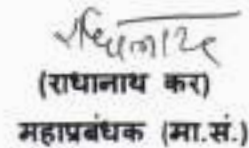 (राधानाथ कर)
महाप्रबंधक (मा.सं.)